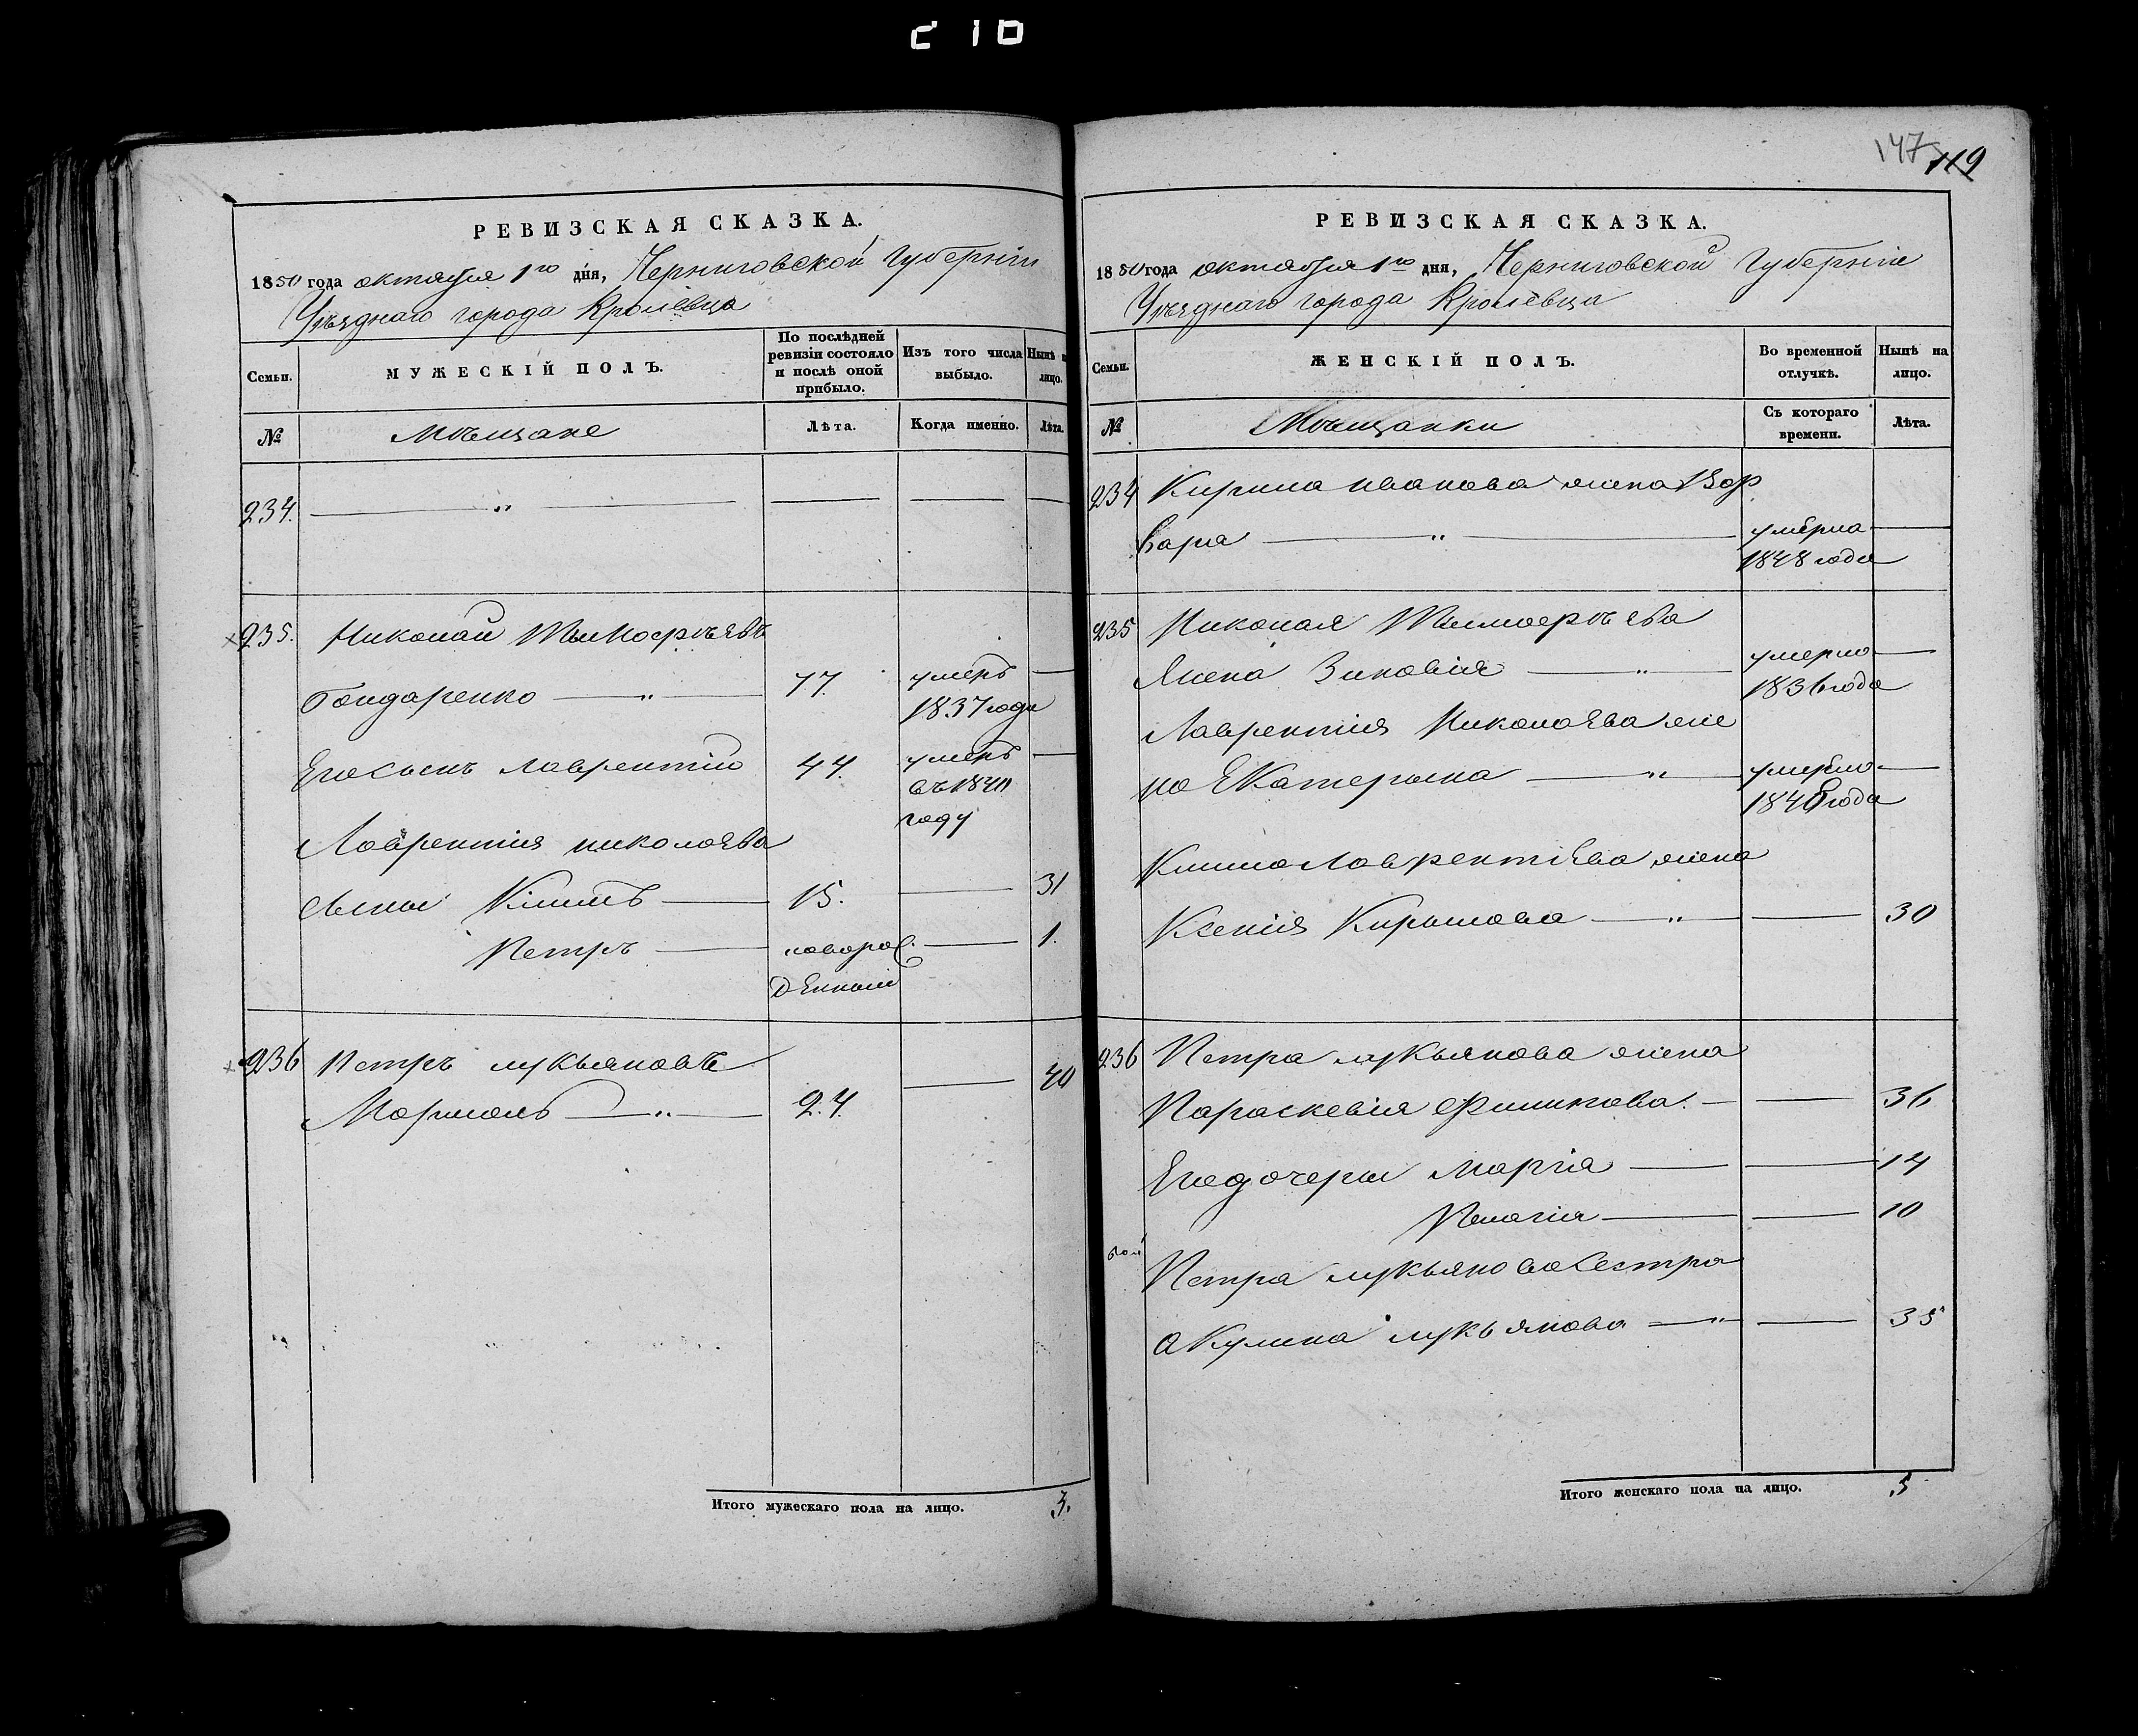 210
147 119
РЕВИЗСКАЯ СКАЗКА.
1850 года октября 1го дня, Черниговской Губерніи
Уѣзднаго города Кролевца
Семьи.
МУЖЕСКІЙ ПОЛЪ.
По послѣдней ревизіи состояло и послѣ оной прибыло.
Изъ того числа выбыло.
Нынѣ на лицо.
№ Мѣщане Лѣта. Когда именно. Лѣта.
234. — " —
235. Николай Тимофѣевъ
Бондаренко — " — 77. умеръ —
1837 года
Его сынъ Лаврентій 44. умеръ —
въ 1840
году
Лаврентія Николаева
сыны Климъ — 15. — 31
Петръ — новорож — 1.
денный
236 Петръ Лукьяновъ
— 40
— " — 24.
Итого мужескаго пола на лицо. 3.
РЕВИЗСКАЯ СКАЗКА.
1850 года октября 1го дня, Черниговской Губерніи
Уѣзднаго города Кролевца
Семьи.
ЖЕНСКІЙ ПОЛЪ.
Во временной отлучкѣ.
Нынѣ на лицо.
№ Мѣщанки Съ котораго времени. Лѣта.
234 Кирила Иванова жена Вар
вара — " — умерла —
1848 года
235 Николая Тимофѣева
жена Зиновія — " — умерла —
1836 года
Лаврентія Николаева же
на Екатерина — " — умерла —
1840 года
Клима Лаврентіева жена
Ксенія Кирилова — " — — 30
236 Петра Лукьянова жена
Параскевія Филипова. — — 36
Его дочери Марія — — 14
Пелагія — — 10
Петра Лукьянова сестра
Акулина Лукьянова — " — — 35
Итого женскаго пола на лицо. 5